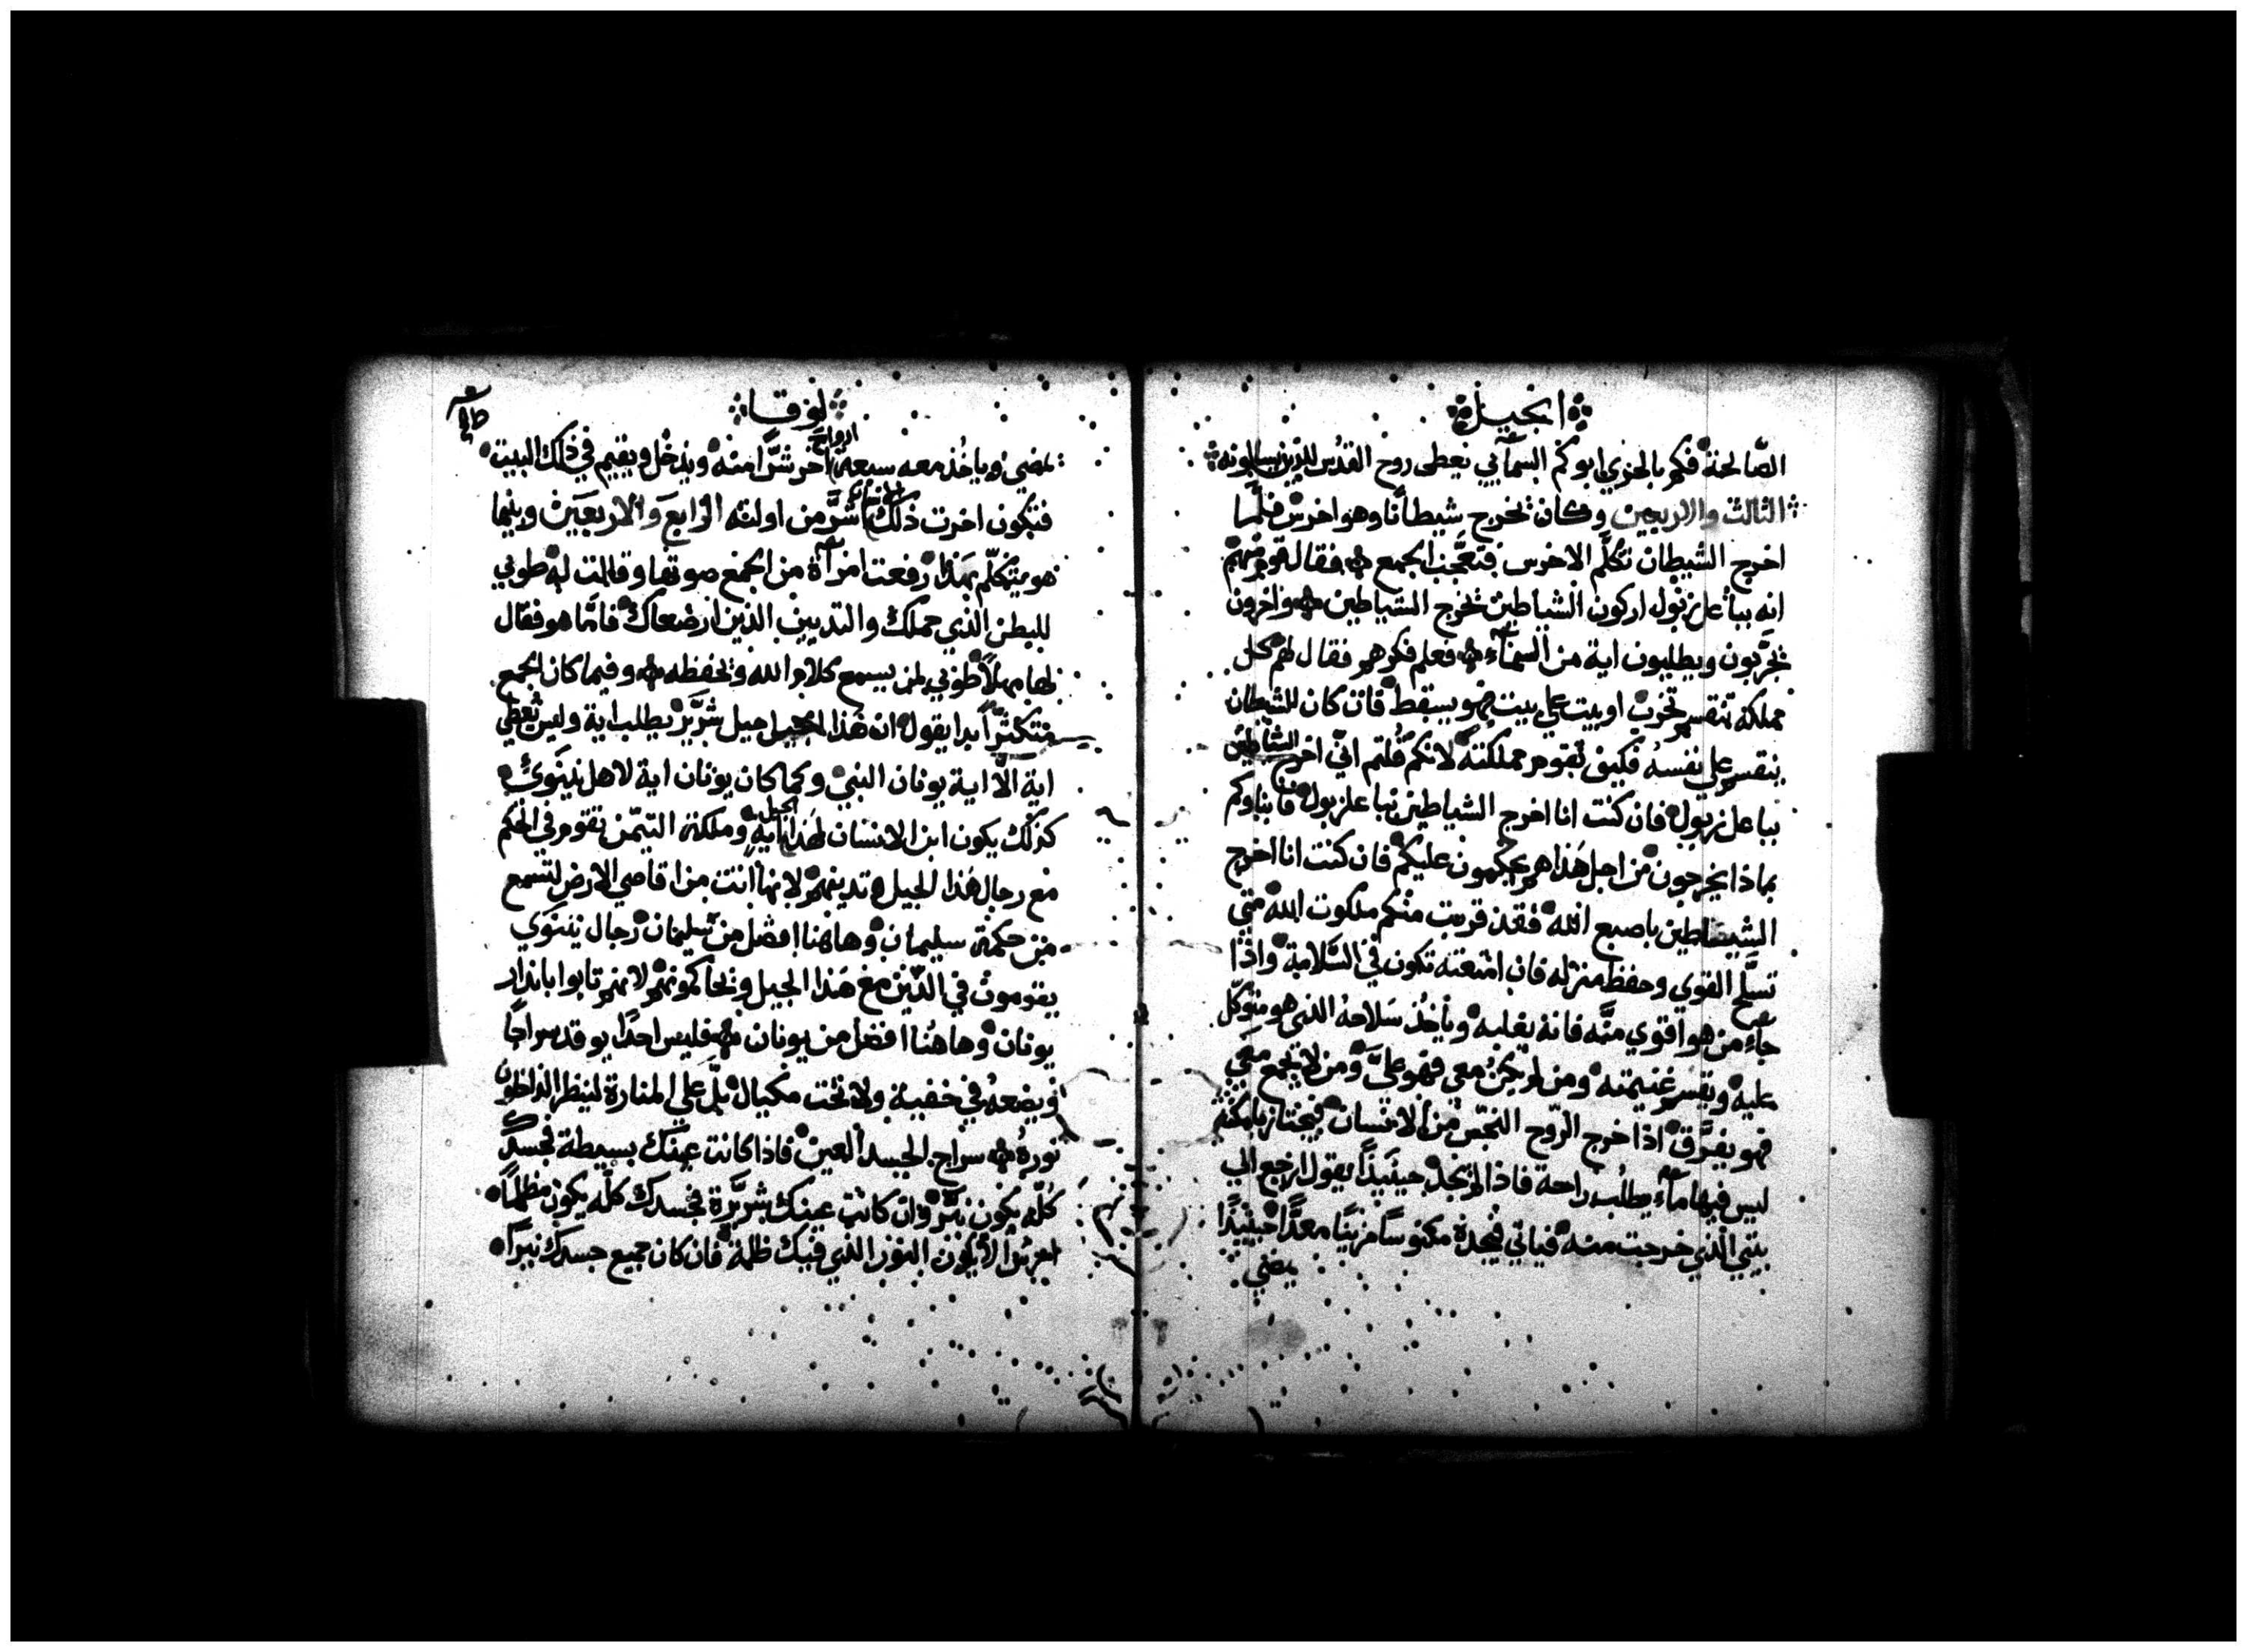 انجيل
الصّالحة فكم بالحري ابوكم السمآيي يعطى روح القدُس للذين يسالونه
الثالث والاربعين وكان يخرج شيطانًا وهو اخرس فلمَّا
اخرج الشيطان تكلَّم الاخرس فتعجَّب الجمع فقال قوم منهم
انه بباعلزبول اركون الشياطين يخرج الشياطين واخرون
يجرَّبون ويطلبون اية من السمآء فعلم فكرهم فقال لهم كل
مملكة تنقسم تخرب او بيت علي بيت فهو يسقط فان كان للشيطان
ينقسم علي نفسه فكيف تقوم مملكته لانكم قُلتم انّي اخرج الشياطين
بباعل زبول فان كنت انا اخرج الشياطين بباعلزبول فابناوكم
بماذا يخرجون من اجل هذا هم يحكمون عليكم فان كنت انا اخرج
الشيطاطين باصبع الله فقد قربت منكم ملكوت الله متي
تسلَّح القوي وحفظ منزله فان امتعته تكون في السَّلامة واذا
جاء من هو اقوي منَّه فانه يغلبه وياخُذ سَلاحهُ الذي هو متوكّل
عليه ويقسم غنيمته ومن لم يكن معي فهو عليَّ ومن لا يجمع معي
فهو يفرَّق اذا خرج الرّوح النجس من الانسان فيجتاز بامكنه
ليس فيها مآء يطلُب راحة فاذا لم يجد حينَيذًا يقول ارجع الي
بيتي الّذي خرجت منه فياتي فيجدهُ مكنوسًا مزينًا معدًّا حينَيذًا
يمضي
لوقا
يمضي وياخُذ معه سبعة ارواح اخر شرًّا منه ويدخُل ويقيم في ذلك البيت
فتكون اخرت ذلك الانسان اشرَّ من اولته الرابعَ وَالاربعَين وبينما
هو يتكلّم بهَذا رفعت امرأة من الجمع صوتها وقالت له طوبي
للبطن الذي حملك والثديين الذين ارضعاك فامَّا هو فقال
لها مهلاً طوبي لمن يسمع كلام الله ويحفظه وفيما كان الجمع
متكثّراً بدا يقول ان هَذا الجيل جيل شرَّير يطلب اية وليس تُعطي
اية الّا اية يونان النبي وكما كان يونان اية لاهل نينَويُ
كذلك يكون ابن الانسان لهَذا الجيل اية وملكة التيّمن تقوم في الحُكم
مع رجال هَذا الجيل وتدينهم لانها اتت من اقاصي الارض لتسمع
من حكمة سليمان وهاهُنا افضل من سُليمان رجال نينَوَي
يقومون في الدّين مع هَذا الجيل ويحاكمونهم لانهم تابوا بانذار
يونان وهاهُنا افضل من يونان فليس احدًا يوقد سراجًا
ويضعهُ في خفية ولا تحت مكيال بلّ عَلي المنارة لينظر الداخلون
نورهُ سراج الجسد العين فاذا كانت عينَك بسيطة فجسدك
كُلّه يكون نيَّر وان كانت عينك شريَّرة فجسدك كلّه يكون مظلمًا
احرسُ الا يكون النور الذي فيك ظلمة فان كان جميع جسدك نيراً